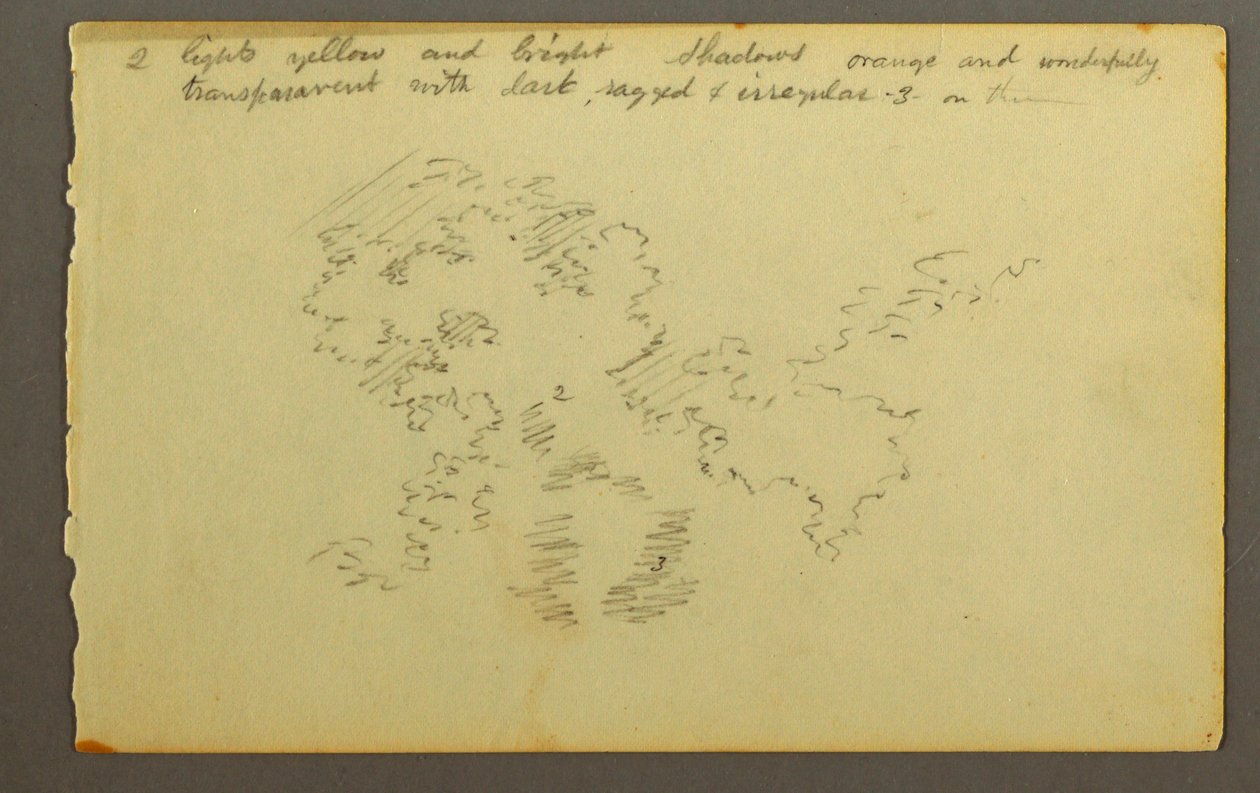 2 lights yellow and bright shadows orange and wonderfully
transparavent with dark, ragged & irregular -3- on
2
3